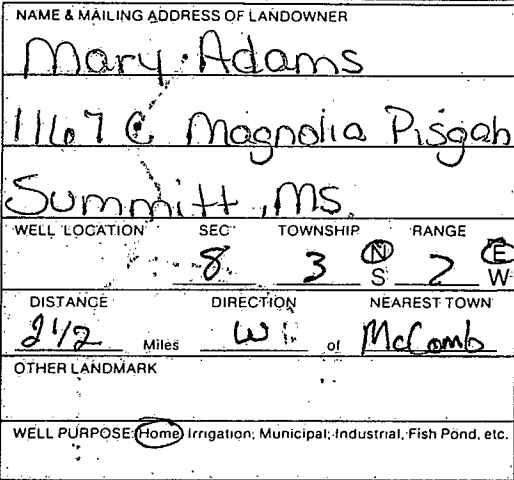 NAME & MAILING ADDRESS OF LANDOWNER
Mary Adams
1167 C Magnolia Pisgah
Summitt, MS.
WELL LOCATION SEC TOWNSHIP RANGE
8 3 N S 7 E W
DISTANCE DIRECTION NEAREST TOWN
2 1/2 Miles W of McComb
OTHER LANDMARK
WELL PURPOSE: Home, Irrigation, Municipal, Industrial, Fish Pond, etc.